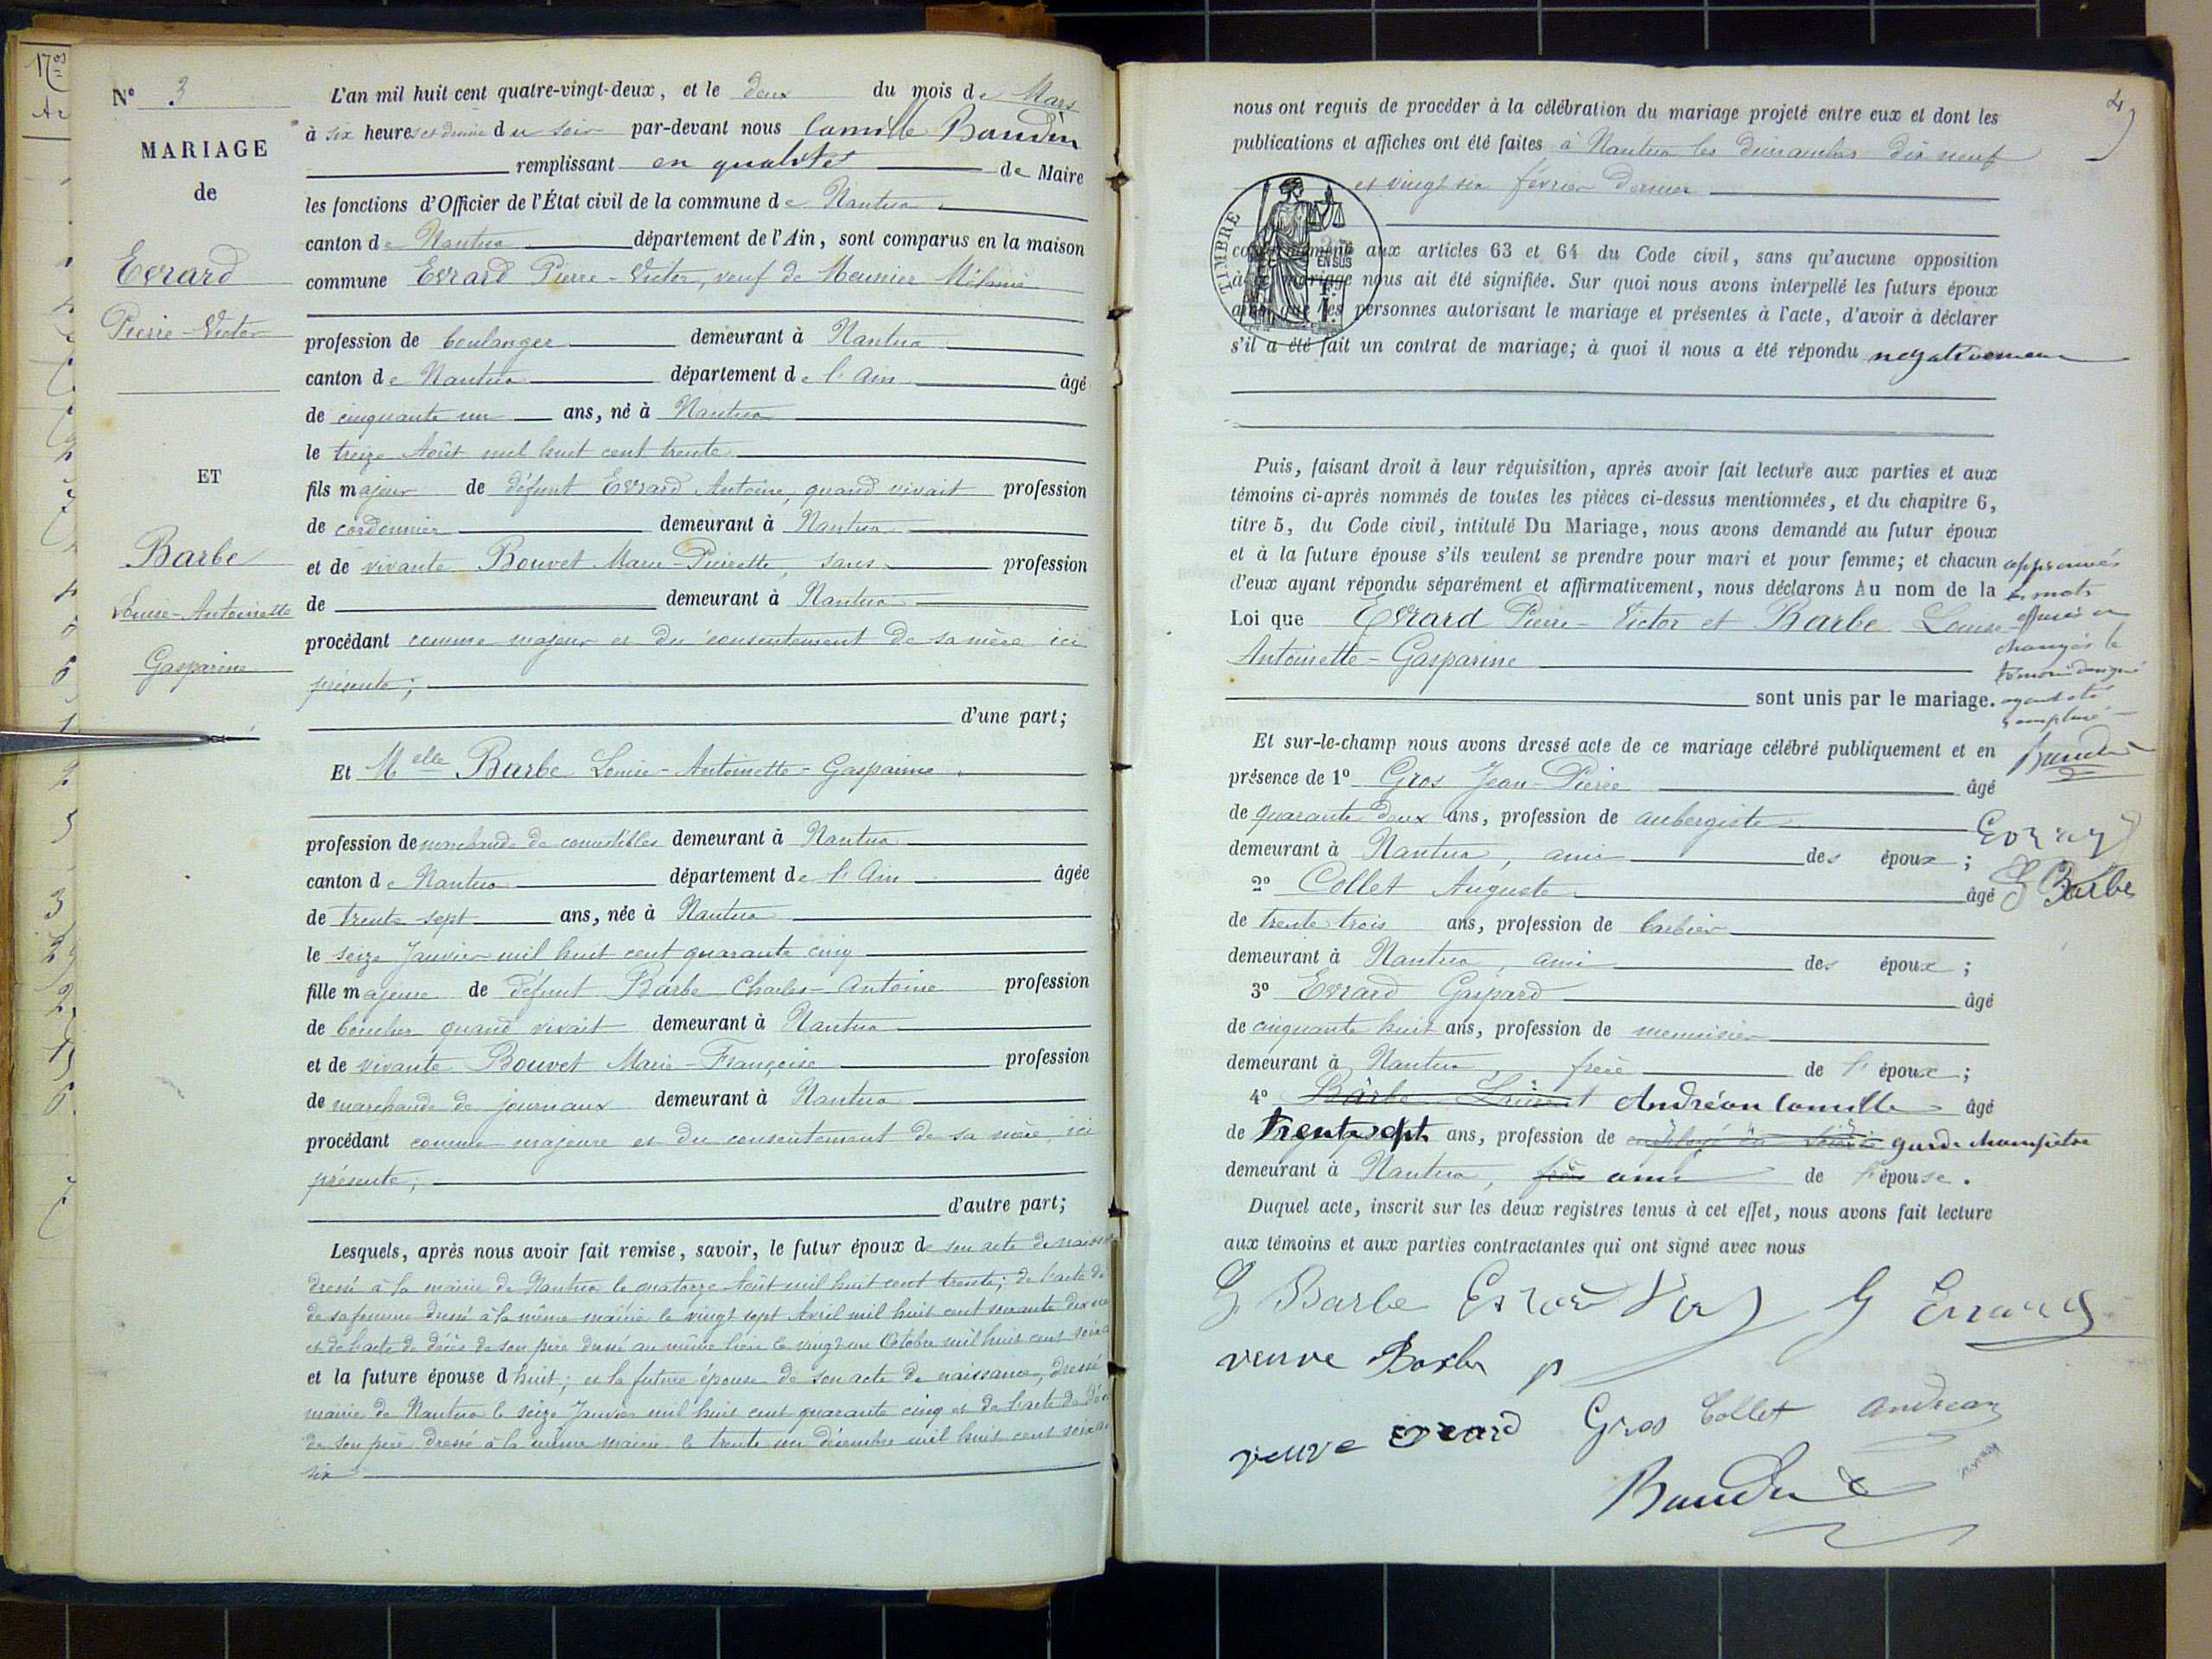 17
N° 3
MARIAGE
de
Evrard
Pierre-Victor
ET
Barbe
Louise-Antoinette
Gasparine
L'an mil huit cent quatre-vingt-deux, et le deux du mois de Mars
à six heures et demie du soir par-devant nous Camille Baudin
remplissant en qualité de Maire
les fonctions d'Officier de l'État civil de la commune de Nantua
canton de Nantua département de l'Ain, sont comparus en la maison
commune Evrard Pierre-Victor, veuf de Meunier Mélanie
profession de boulanger demeurant à Nantua
canton de Nantua département de l'Ain âgé
de cinquante un ans, né à Nantua
le treize Août mil huit cent trente
fils majeur de défunt Evrard Antoine, quand vivait profession
de cordonnier demeurant à Nantua
et de vivante Bouvet Marie-Pierrette, sans profession
de demeurant à Nantua
procédant comme majeur et du consentement de sa mère ici
présente;
d'une part;
Et Melle Barbe Louise-Antoinette-Gasparine
profession de marchande de comestibles demeurant à Nantua
canton de Nantua département de l'Ain âgée
de trente-sept ans, née à Nantua
le seize Janvier mil huit cent quarante cinq
fille majeure de défunt Barbe Charles-Antoine profession
de boucher quand vivait demeurant à Nantua
et de vivante Bouvet Marie-Françoise profession
de marchande de journaux demeurant à Nantua
procédant comme majeure et du consentement de sa mère, ici
présente;
d'autre part;
Lesquels, après nous avoir fait remise, savoir, le futur époux de son acte de
dressé à la mairie de Nantua le quatorze Août mil huit cent trente; de l'acte de
de sa femme dressé à la même mairie le vingt sept Avril mil huit cent soixante dix
et de l'acte de décès de son père dressé au même lieu le vingt un Octobre mil huit cent
et la future épouse d huit; et la future épouse de son acte de naissance, dressé
mairie de Nantua le seize Janvier mil huit cent quarante cinq et de l'acte de
de son père dressé à la même mairie le trente un décembre mil huit cent
six
4
nous ont requis de procéder à la célébration du mariage projeté entre eux et dont les
publications et affiches ont été faites à Nantua les dimanches dix neuf
et vingt six février dernier
TIMBRE
EN SUS
conformément aux articles 63 et 64 du Code civil, sans qu'aucune opposition
à ce mariage nous ait été signifiée. Sur quoi nous avons interpellé les futurs époux
ainsi que les personnes autorisant le mariage et présentes à l'acte, d'avoir à déclarer
s'il a été fait un contrat de mariage; à quoi il nous a été répondu négativement
Puis, faisant droit à leur réquisition, après avoir fait lecture aux parties et aux
témoins ci-après nommés de toutes les pièces ci-dessus mentionnées, et du chapitre 6,
titre 5, du Code civil, intitulé Du Mariage, nous avons demandé au futur époux
et à la future épouse s'ils veulent se prendre pour mari et pour femme; et chacun
d'eux ayant répondu séparément et affirmativement, nous déclarons Au nom de la
Loi que Evrard Pierre-Victor et Barbe Louise-
Antoinette-Gasparine
sont unis par le mariage.
approuvés
mots
changés le
ayant été
Evrard
G Barbe
Et sur-le-champ nous avons dressé acte de ce mariage célébré publiquement et en
présence de 1° Gros Jean-Pierre âgé
de quarante deux ans, profession de aubergiste
demeurant à Nantua, ami des époux;
2° Collet Auguste âgé
de trente trois ans, profession de barbier
demeurant à Nantua, ami des époux;
3° Evrard Gaspard âgé
de cinquante huit ans, profession de menuisier
demeurant à Nantua, frère de l'époux;
4° Barbe Laurent Andréan Camille âgé
de trente sept ans, profession de garde champêtre
demeurant à Nantua, frère ami de l'épouse.
Duquel acte, inscrit sur les deux registres tenus à cet effet, nous avons fait lecture
aux témoins et aux parties contractantes qui ont signé avec nous
G Barbe G Evrard
veuve Barbe
veuve evrard Gros Collet andrean
Baudin